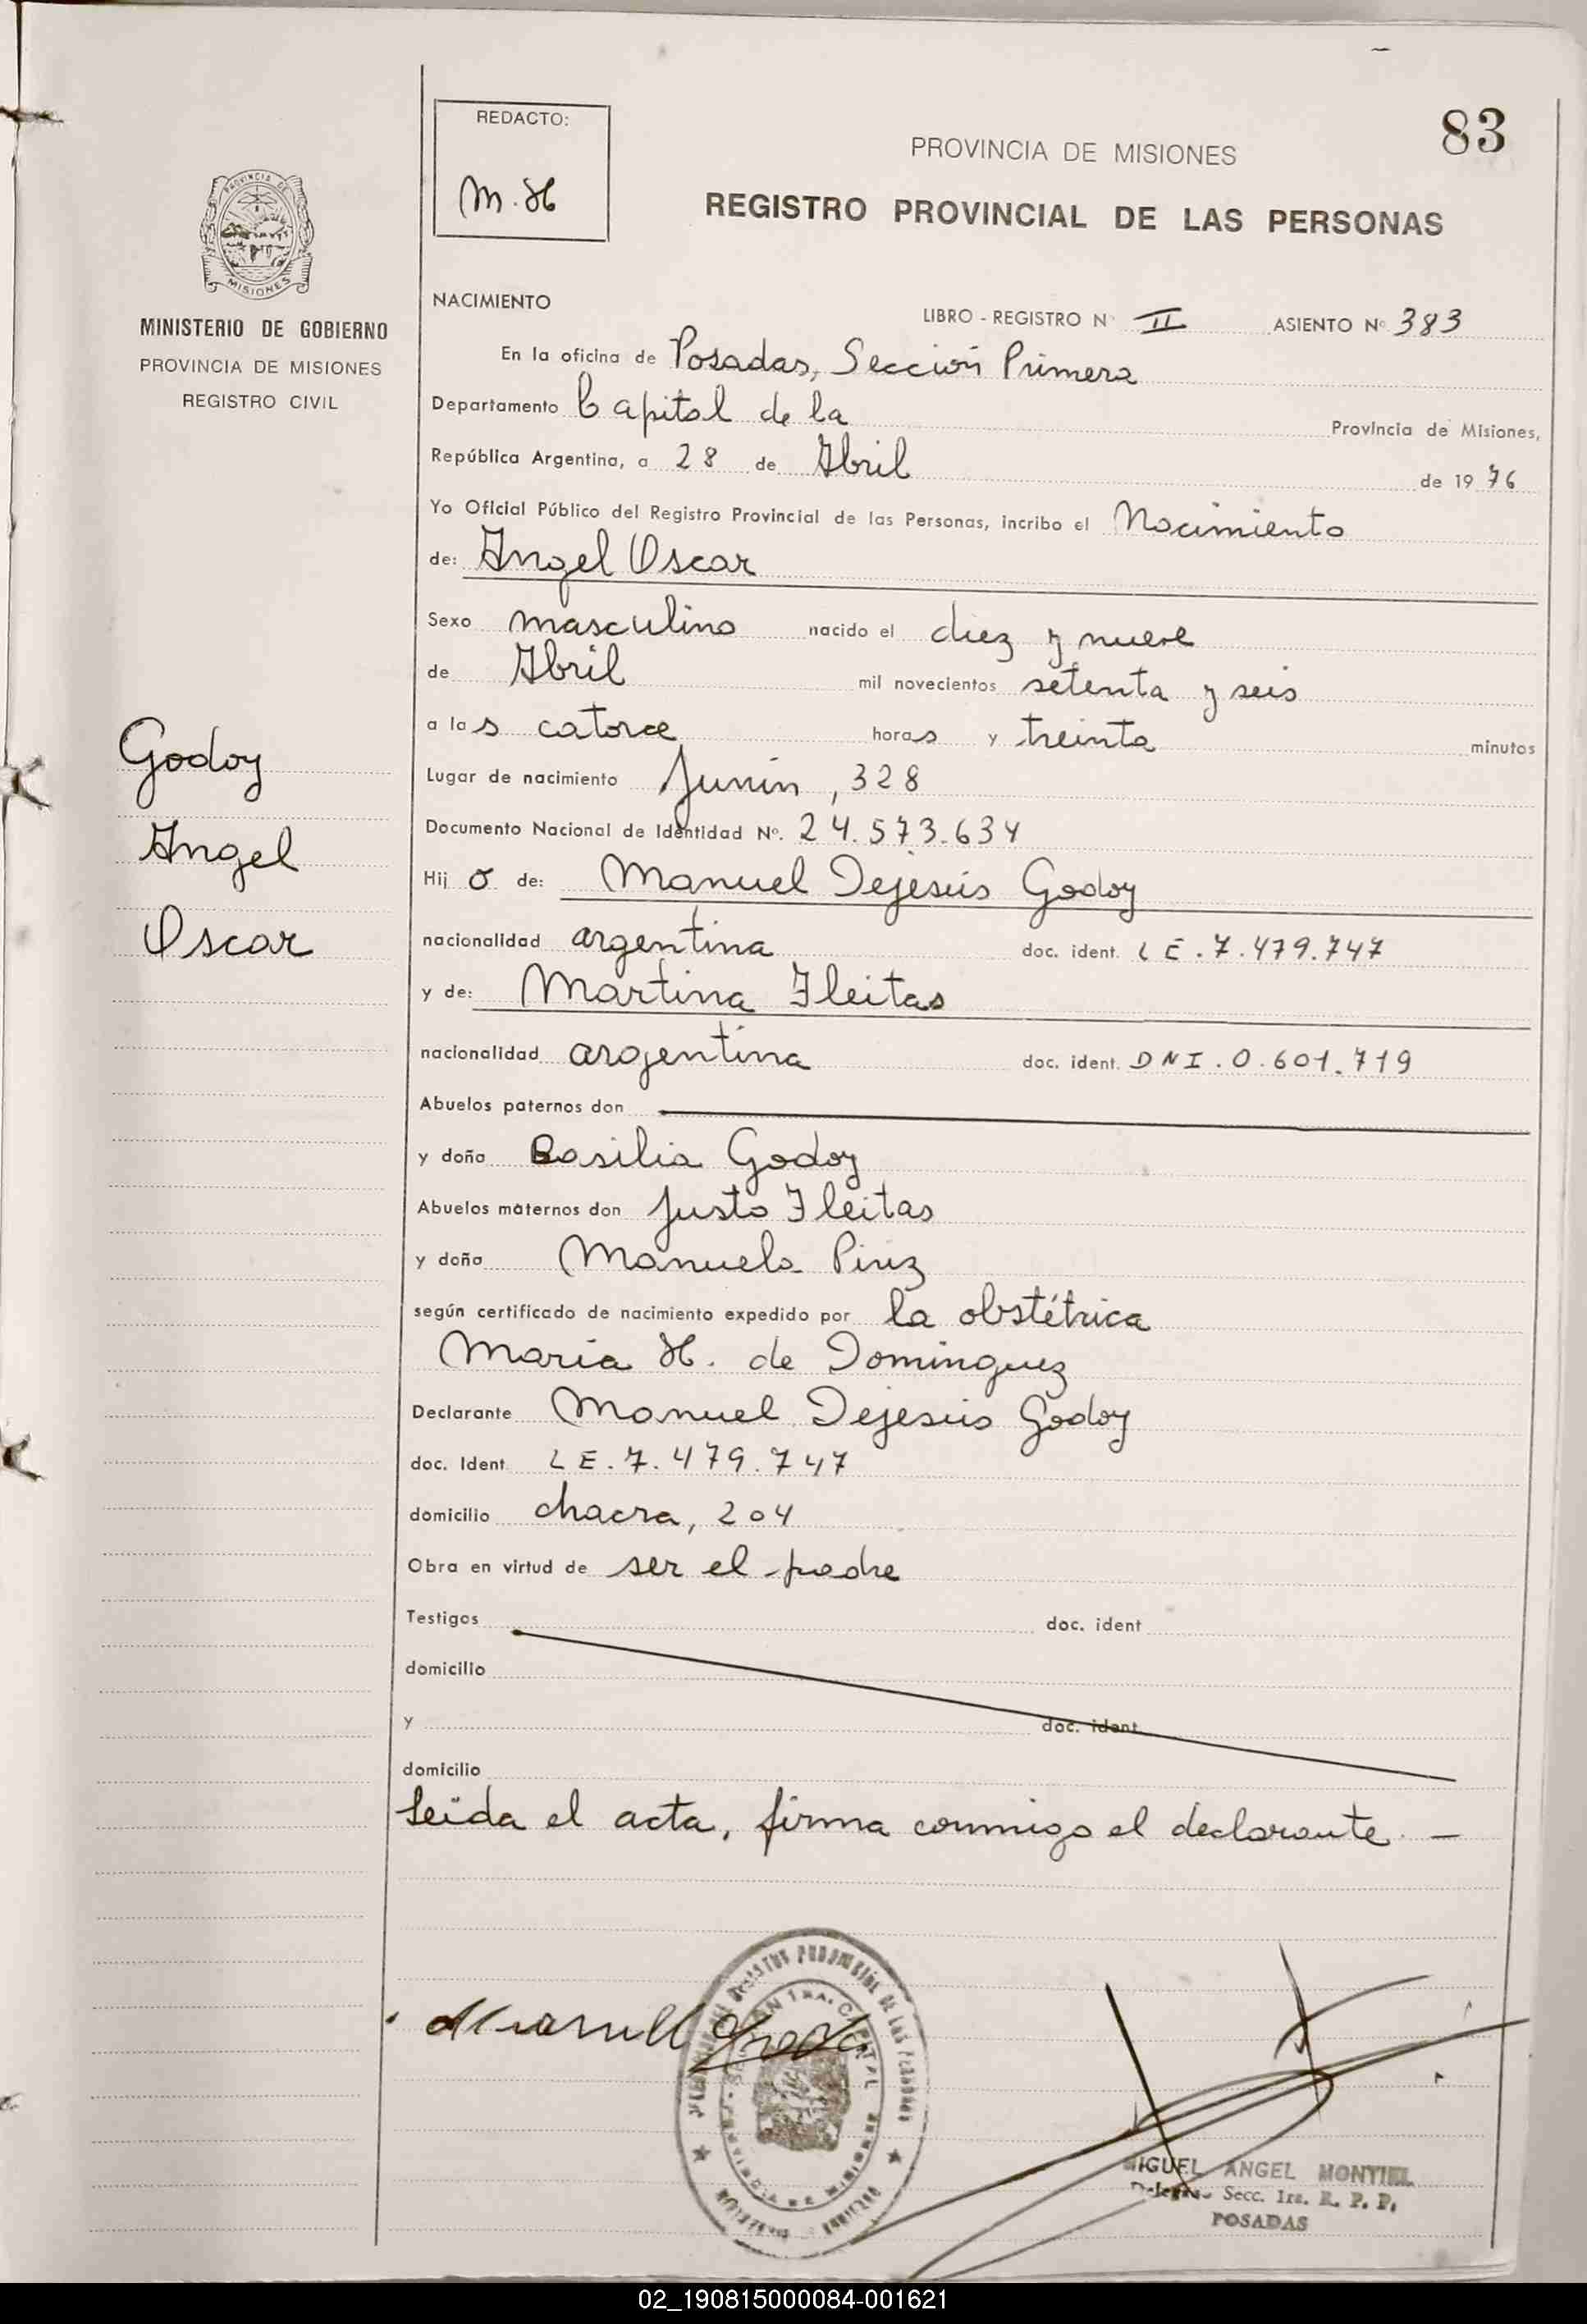 83
REDACTO:
M. H
PROVINCIA DE MISIONES
REGISTRO PROVINCIAL DE LAS PERSONAS
PROVINCIA DE
MISIONES
MINISTERIO DE GOBIERNO
PROVINCIA DE MISIONES
REGISTRO CIVIL
NACIMIENTO
LIBRO - REGISTRO Nº II ASIENTO Nº 383
En la oficina de Posadas, Sección Primera
Departamento Capital de la Provincia de Misiones,
República Argentina, a 28 de Abril de 1976
Yo Oficial Público del Registro Provincial de las Personas, incribo el Nacimiento
de: Angel Oscar
Sexo masculino nacido el diez y nueve
de Abril mil novecientos setenta y seis
a las catorce horas y treinta minutos
Lugar de nacimiento Junín, 328
Documento Nacional de Identidad Nº. 24.573.634
Hijo de: Manuel Dejesús Godoy
nacionalidad argentina doc. ident. LE.7.479.747
y de: Martina Fleitas
nacionalidad argentina doc. ident. DNI.0.601.719
Abuelos paternos don
y doña Basilia Godoy
Abuelos maternos don Justo Fleitas
y doña Manuela Piriz
según certificado de nacimiento expedido por la obstétrica
María H. de Dominguez
Declarante Manuel Dejesús Godoy
doc. Ident. LE.7.479.747
domicilio chacra, 204
Obra en virtud de ser el padre
Testigos doc. ident
domicilio
y doc. ident
domicilio
Leída el acta, firma conmigo el declarante. —
Godoy
Angel
Oscar
Manuel Godoy
MIGUEL ANGEL MONTIEL
Delegado Secc. 1ra. R. P. P.
POSADAS
02_190815000084-001621